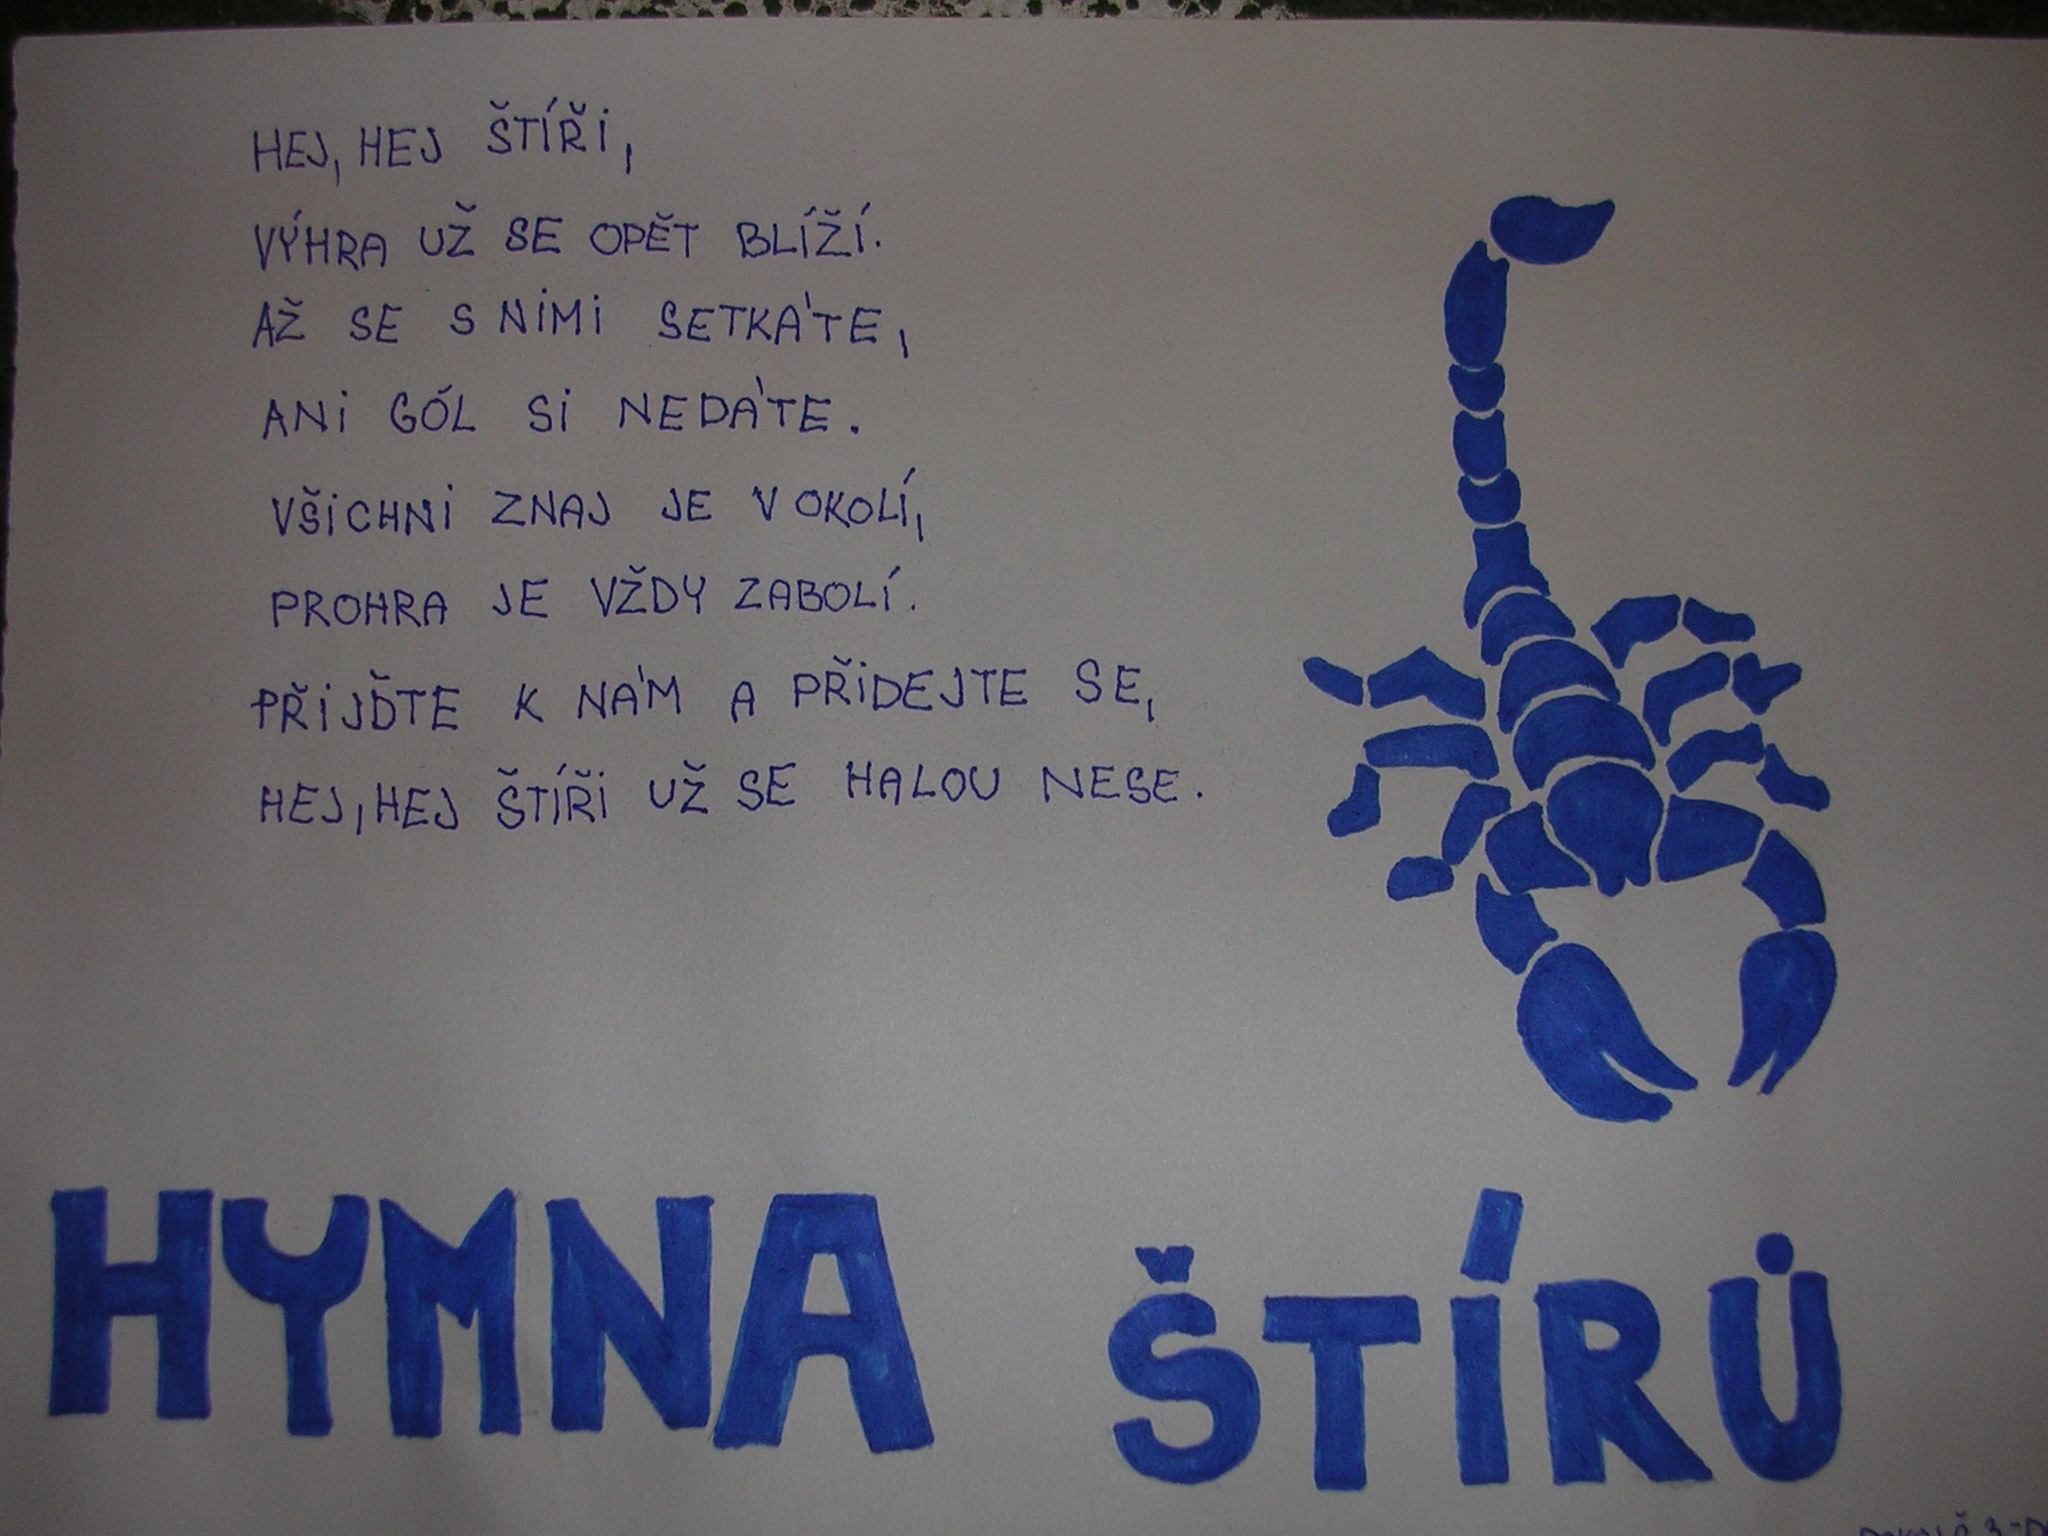 HEJ, HEJ ŠTÍŘI,
VÝHRA UŽ SE OPĚT BLÍŽÍ.
AŽ SE S NIMI SETKÁTE,
ANI GÓL SI NEDÁTE.
VŠICHNI ZNAJ JE V OKOLÍ,
PROHRA JE VŽDY ZABOLÍ.
PŘIJĎTE K NÁM A PŘIDEJTE SE,
HEJ, HEJ ŠTÍŘI UŽ SE HALOU NESE.
HYMNA ŠTÍRŮ